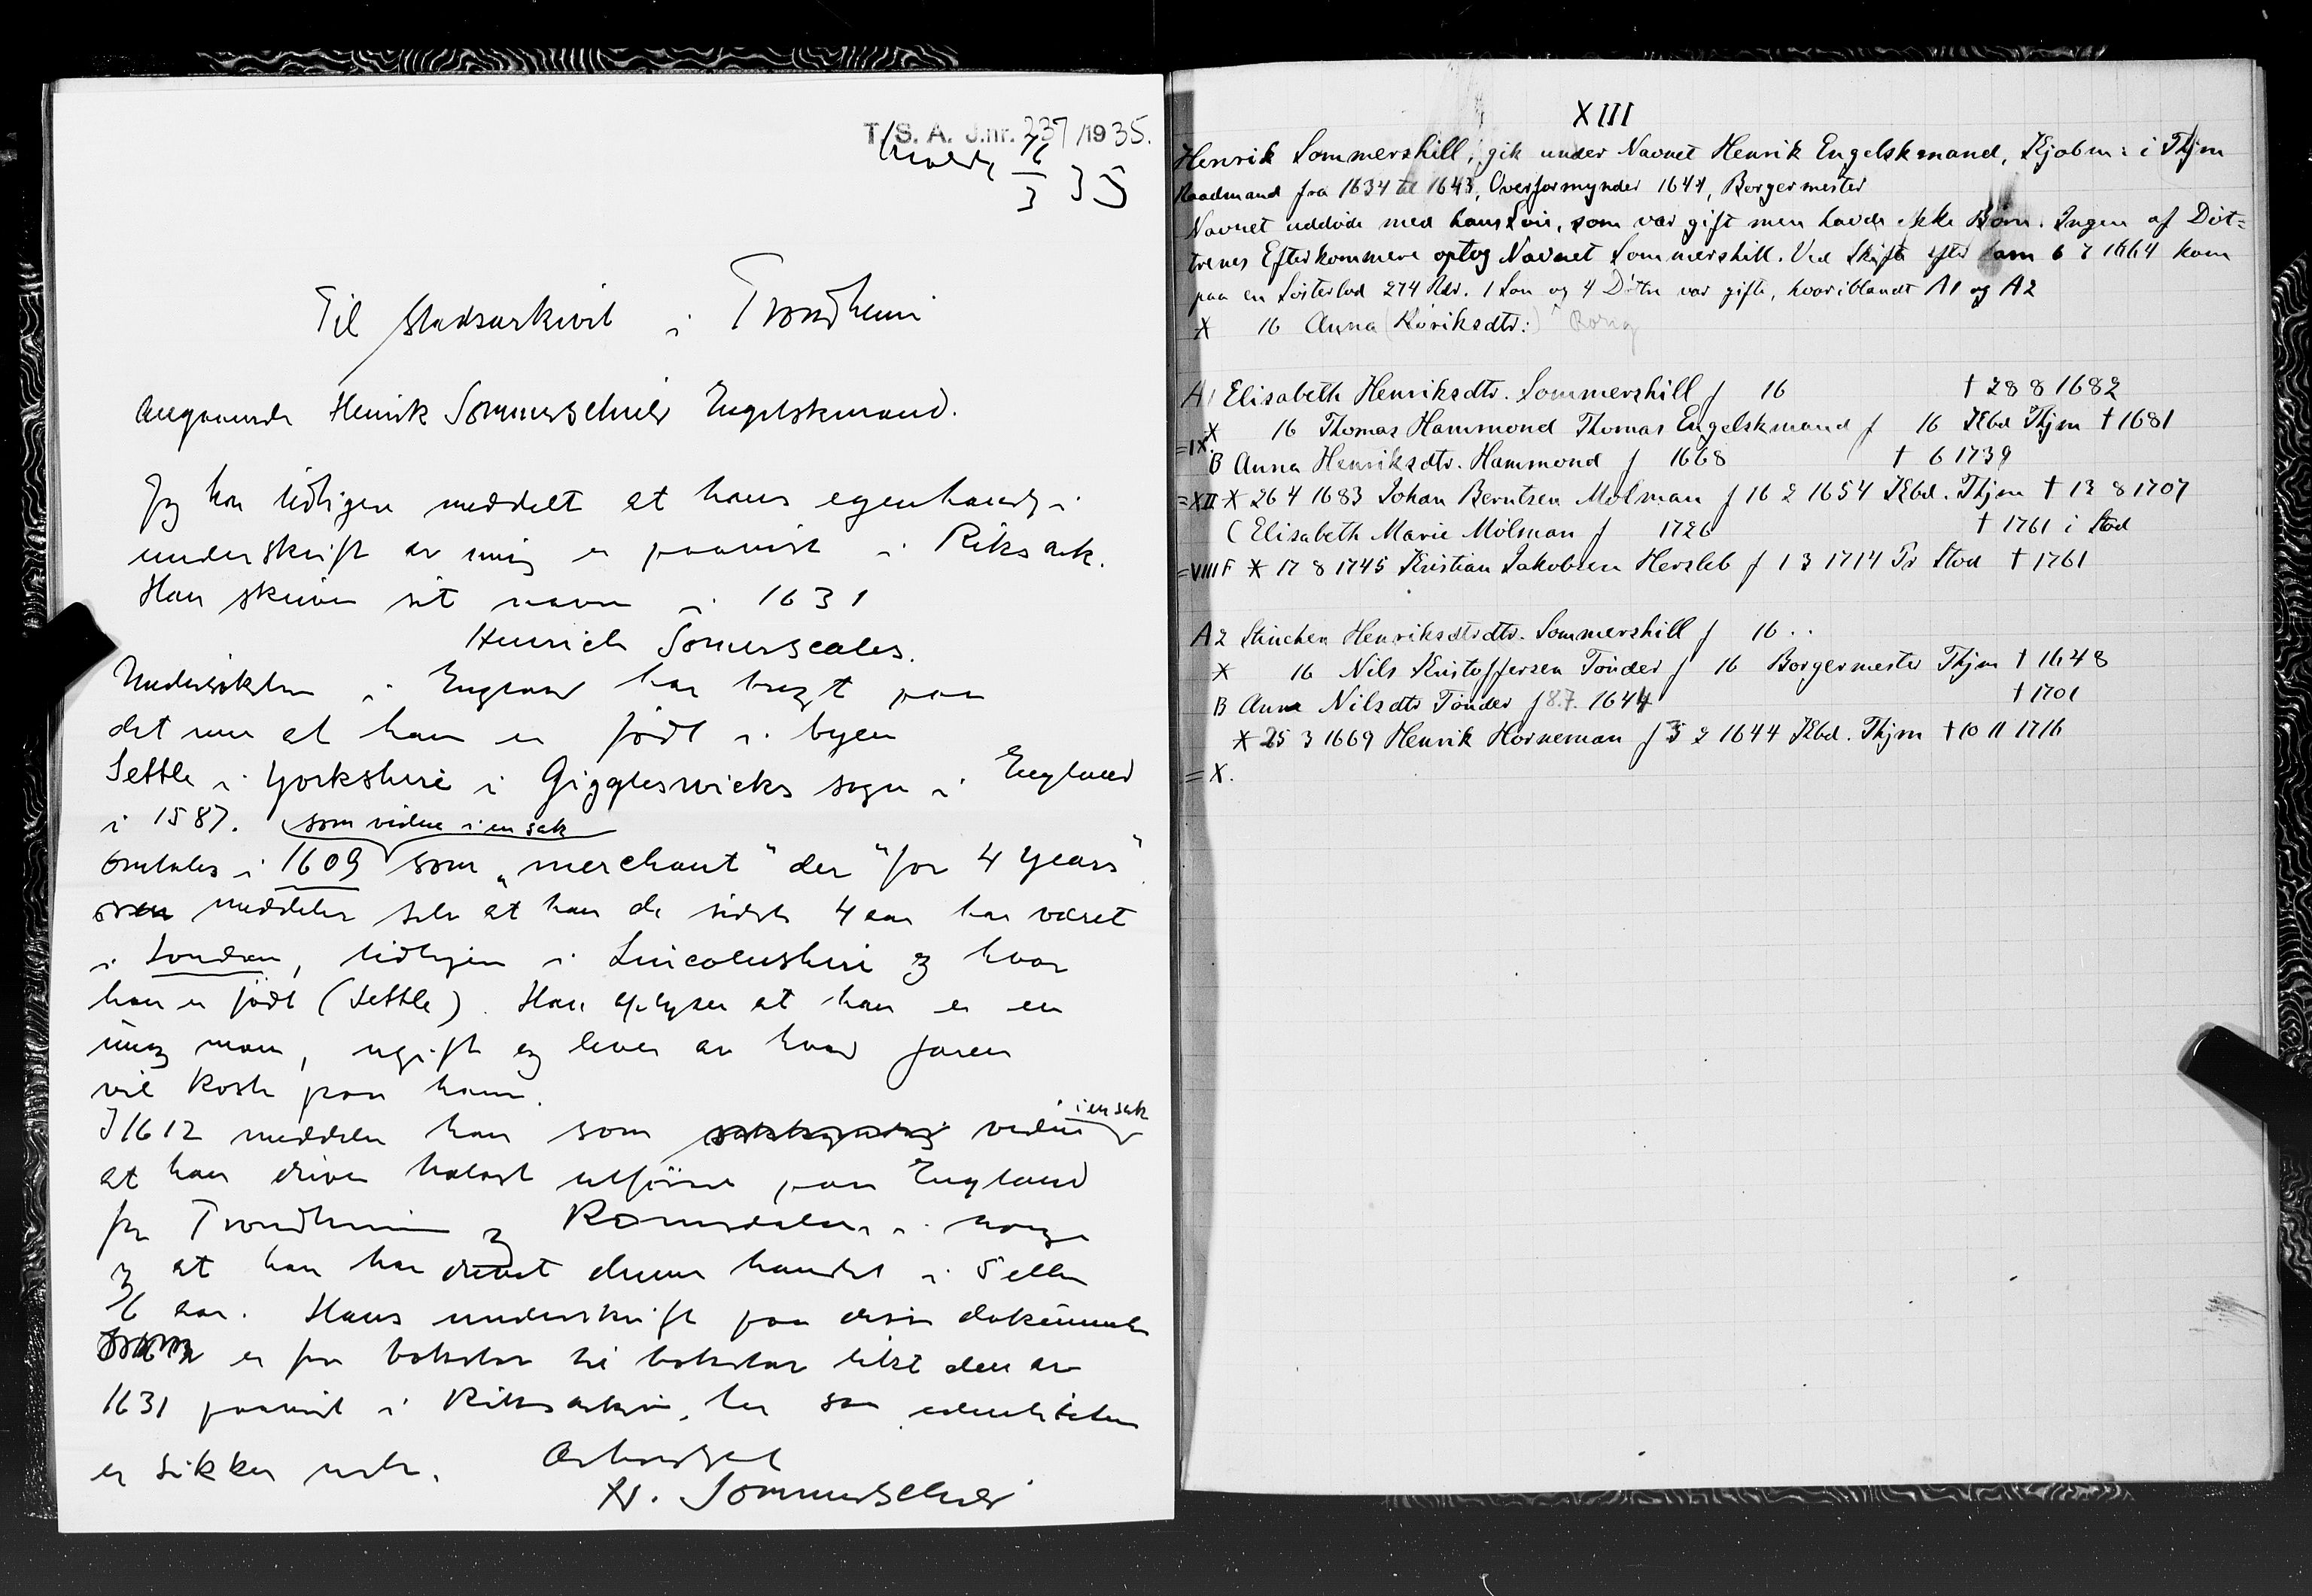 T. S. A. J.nr. 237/1935.
Molde 16/3 35
Til Stadsarkivet i Trondheim
Angaaende Henrik Sommerschield Engelskmand.
Jeg har tidligere meddelt at hans egenhændige
underskrift av mig er paavist i Riksark.
Han skriver sit navn i 1631
Henrich Somerscales.
Undersøkelsen i England har bragt paa
det rene at han er født i byen
Settle i Yorkshire i Giggleswicks sogn i England
i 1587. som vidne i en sak
Omtales i 1609 som „merchant" der "for 4 years"
meddeler selv at han de sidste 4 aar har været
i London, tidligere i Lincolnshire og hvor
han er født (Settle). Han oplyser at han er en
ung man, ugift og lever av hvad faren
vil koste paa ham.
I 1612 meddeler han som vidne i en sak
at han driver trelast utførsel paa England
fra Trondheim og Romsdalen i Norge
og at han har drevet denne handel i 5 eller
6 aar. Hans underskrift paa disse dokumenter
er fra bokstav til bokstav likt den av
1631 paavist i Riksarkivet, saa identiteten
er sikker nok.
Ærbødigst
W. Sommerschield
XIII
Henrik Sommershill, gik under Navnet Henrik Engelskmand, Kjøbm: i Thjm
Raadmand fra 1634 til 1643, Overformynder 1644, Borgermester
Navnet uddøde med hans Søn, som var gift men havde ikke Børn. Ingen af Døt=
trenes Efterkommere optog Navnet Sommershill. Ved Skifte efter ham 6 7 1664 kom
paa en Søsterlod 274 Rdr. 1 Søn og 4 Døtre var gifte, hvoriblandt A1 og A2
X 16 Anna (Röriksdtr:) Rorig
A1 Elisabeth Henriksdtr. Sommershill f 16 † 28 8 1682
X 16 Thomas Hammond Thomas Engelskmand f 16 Kbd Thjm † 1681
=IX.
B Anna Henriksdtr. Hammond f 1668 † 6 1739
=XII X 26 4 1683 Johan Berntsen Mölman f 16 2 1654 Kbd. Thjm † 13 8 1707
C Elisabeth Marie Mölman f 1726 † 1761 i Stod
=VIII F X 17 8 1745 Kristian Jakobsen Hersleb f 1 3 1714 Pr Stod † 1761
A2 Stinchen Henriksdtrdtr. Sommershill f 16 ..
X 16 Nils Kristoffersen Tönder f 16 Borgermester Thjm † 1648
B Anne Nilsdtr Tönder f 8.7. 1644 † 1701
X 25 3 1669 Henrik Horneman f 3 2 1644 Kbd. Thjm † 10 11 1716
= X.